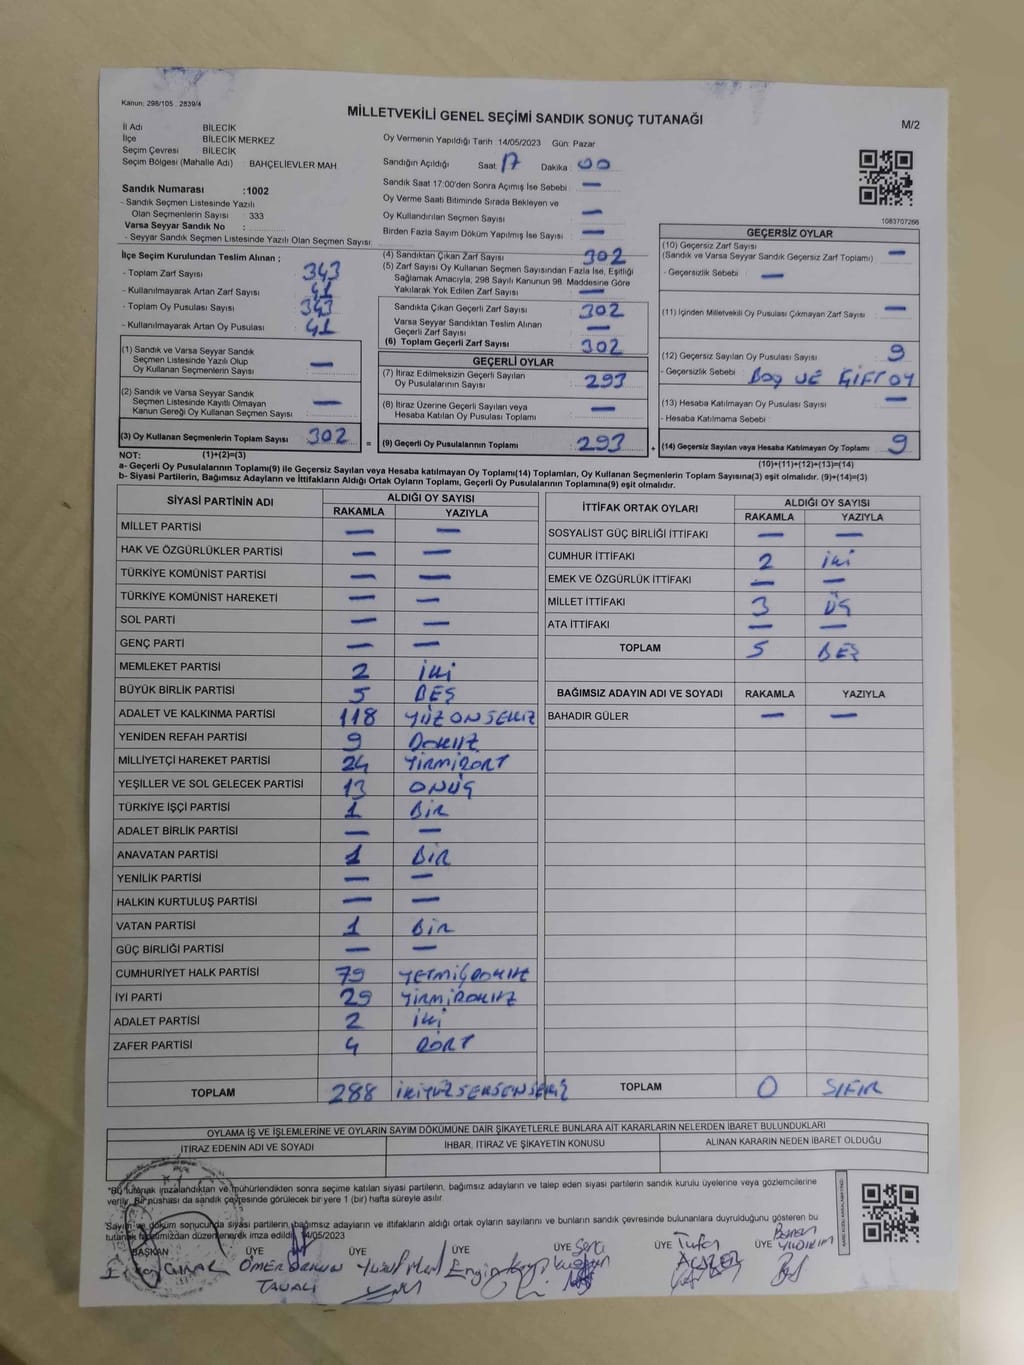 Kanun: 298/105 . 2839/4
MİLLETVEKİLİ GENEL SEÇİMİ SANDIK SONUÇ TUTANAĞI
M/2
İl Adı BİLECİK
İlçe BİLECİK MERKEZ
Seçim Çevresi BİLECİK
Seçim Bölgesi (Mahalle Adı) : BAHÇELİEVLER MAH
Oy Vermenin Yapıldığı Tarih :14/05/2023 Gün: Pazar
Sandığın Açıldığı Saat 17 Dakika : 00
Sandık Saat 17:00'den Sonra Açımış İse Sebebi : —
Oy Verme Saati Bitiminde Sırada Bekleyen ve
Oy Kullandırılan Seçmen Sayısı : —
Birden Fazla Sayım Döküm Yapılmış İse Sayısı : —
1083707266
Sandık Numarası :1002
- Sandık Seçmen Listesinde Yazılı
Olan Seçmenlerin Sayısı : 333
Varsa Seyyar Sandık No :
- Seyyar Sandık Seçmen Listesinde Yazılı Olan Seçmen Sayısı:
İlçe Seçim Kurulundan Teslim Alınan ;
- Toplam Zarf Sayısı : 343
- Kullanılmayarak Artan Zarf Sayısı : 41
- Toplam Oy Pusulası Sayısı : 343
- Kullanılmayarak Artan Oy Pusulası : 41
(1) Sandık ve Varsa Seyyar Sandık
Seçmen Listesinde Yazılı Olup
Oy Kullanan Seçmenlerin Sayısı : —
(2) Sandık ve Varsa Seyyar Sandık
Seçmen Listesinde Kayıtlı Olmayan
Kanun Gereği Oy Kullanan Seçmen Sayısı : —
(3) Oy Kullanan Seçmenlerin Toplam Sayısı : 302
(4) Sandıktan Çıkan Zarf Sayısı : 302
(5) Zarf Sayısı Oy Kullanan Seçmen Sayısından Fazla İse, Eşitliği
Sağlamak Amacıyla, 298 Sayılı Kanunun 98. Maddesine Göre
Yakılarak Yok Edilen Zarf Sayısı : —
Sandıkta Çıkan Geçerli Zarf Sayısı : 302
Varsa Seyyar Sandıktan Teslim Alınan
Geçerli Zarf Sayısı : —
(6) Toplam Geçerli Zarf Sayısı : 302
GEÇERLİ OYLAR
(7) İtiraz Edilmeksizin Geçerli Sayılan
Oy Pusulalarının Sayısı : 293
(8) İtiraz Üzerine Geçerli Sayılan veya
Hesaba Katılan Oy Pusulası Toplamı : —
= (9) Geçerli Oy Pusulalarının Toplamı : 293 +
GEÇERSİZ OYLAR
(10) Geçersiz Zarf Sayısı
(Sandık ve Varsa Seyyar Sandık Geçersiz Zarf Toplamı) : —
- Geçersizlik Sebebi : —
(11) İçinden Milletvekili Oy Pusulası Çıkmayan Zarf Sayısı : —
(12) Geçersiz Sayılan Oy Pusulası Sayısı : 9
- Geçersizlik Sebebi : BOŞ VE ÇİFT OY
(13) Hesaba Katılmayan Oy Pusulası Sayısı : —
- Hesaba Katılmama Sebebi
(14) Geçersiz Sayılan veya Hesaba Katılmayan Oy Toplamı : 9
NOT: (1)+(2)=(3)
(10)+(11)+(12)+(13)=(14)
a- Geçerli Oy Pusulalarının Toplamı(9) ile Geçersiz Sayılan veya Hesaba katılmayan Oy Toplamı(14) Toplamları, Oy Kullanan Seçmenlerin Toplam Sayısına(3) eşit olmalıdır. (9)+(14)=(3)
b- Siyasi Partilerin, Bağımsız Adayların ve İttifakların Aldığı Ortak Oyların Toplamı, Geçerli Oy Pusulalarının Toplamına(9) eşit olmalıdır.
SİYASİ PARTİNİN ADI ALDIĞI OY SAYISI
RAKAMLA YAZIYLA
MİLLET PARTİSİ — —
HAK VE ÖZGÜRLÜKLER PARTİSİ — —
TÜRKİYE KOMÜNİST PARTİSİ — —
TÜRKİYE KOMÜNİST HAREKETİ — —
SOL PARTİ — —
GENÇ PARTİ — —
MEMLEKET PARTİSİ 2 İKİ
BÜYÜK BİRLİK PARTİSİ 5 BEŞ
ADALET VE KALKINMA PARTİSİ 118 YÜZ ONSEKİZ
YENİDEN REFAH PARTİSİ 9 DOKUZ
MİLLİYETÇİ HAREKET PARTİSİ 24 YİRMİDÖRT
YEŞİLLER VE SOL GELECEK PARTİSİ 13 ONÜÇ
TÜRKİYE İŞÇİ PARTİSİ 1 BİR
ADALET BİRLİK PARTİSİ — —
ANAVATAN PARTİSİ 1 BİR
YENİLİK PARTİSİ — —
HALKIN KURTULUŞ PARTİSİ — —
VATAN PARTİSİ 1 BİR
GÜÇ BİRLİĞİ PARTİSİ — —
CUMHURİYET HALK PARTİSİ 79 YETMİŞDOKUZ
İYİ PARTİ 29 YİRMİDOKUZ
ADALET PARTİSİ 2 İKİ
ZAFER PARTİSİ 4 DÖRT
TOPLAM 288 İKİYÜZSEKSENSEKİZ
İTTİFAK ORTAK OYLARI ALDIĞI OY SAYISI
RAKAMLA YAZIYLA
SOSYALİST GÜÇ BİRLİĞİ İTTİFAKI — —
CUMHUR İTTİFAKI 2 İKİ
EMEK VE ÖZGÜRLÜK İTTİFAKI — —
MİLLET İTTİFAKI 3 ÜÇ
ATA İTTİFAKI — —
TOPLAM 5 BEŞ
BAĞIMSIZ ADAYIN ADI VE SOYADI RAKAMLA YAZIYLA
BAHADIR GÜLER — —
TOPLAM 0 SIFIR
OYLAMA İŞ VE İŞLEMLERİNE VE OYLARIN SAYIM DÖKÜMÜNE DAİR ŞİKAYETLERLE BUNLARA AİT KARARLARIN NELERDEN İBARET BULUNDUKLARI
İTİRAZ EDENİN ADI VE SOYADI İHBAR, İTİRAZ VE ŞİKAYETİN KONUSU ALINAN KARARIN NEDEN İBARET OLDUĞU
"Bu tutanak imzalandıktan ve mühürlendikten sonra seçime katılan siyasi partilerin, bağımsız adayların ve talep eden siyasi partilerin sandık kurulu üyelerine veya gözlemcilerine
verilir. Bir nüshası da sandık çevresinde görülecek bir yere 1 (bir) hafta süreyle asılır.
Sayım ve döküm sonucunda siyasi partilerin, bağımsız adayların ve ittifakların aldığı ortak oyların sayılarını ve bunların sandık çevresinde bulunanlara duyrulduğunu gösteren bu
tutanak tarafımızdan düzenlenerek imza edildi. 14/05/2023
BAŞKAN ÜYE ÜYE ÜYE ÜYE ÜYE ÜYE
ÖMER
TAVALI
Engin
YILDIRIM